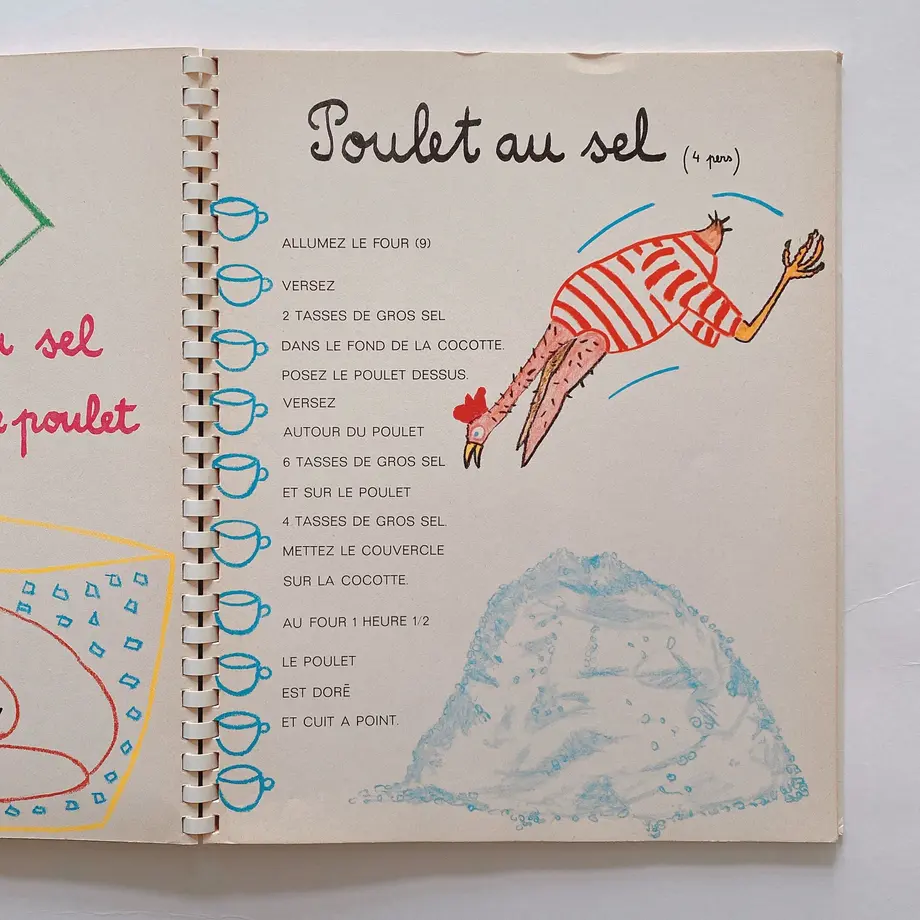 sel
poulet
Poulet au sel (4 pers)
ALLUMEZ LE FOUR (9)
VERSEZ
2 TASSES DE GROS SEL
DANS LE FOND DE LA COCOTTE.
POSEZ LE POULET DESSUS.
VERSEZ
AUTOUR DU POULET
6 TASSES DE GROS SEL
ET SUR LE POULET
4 TASSES DE GROS SEL.
METTEZ LE COUVERCLE
SUR LA COCOTTE.
AU FOUR 1 HEURE 1/2
LE POULET
EST DORÉ
ET CUIT A POINT.